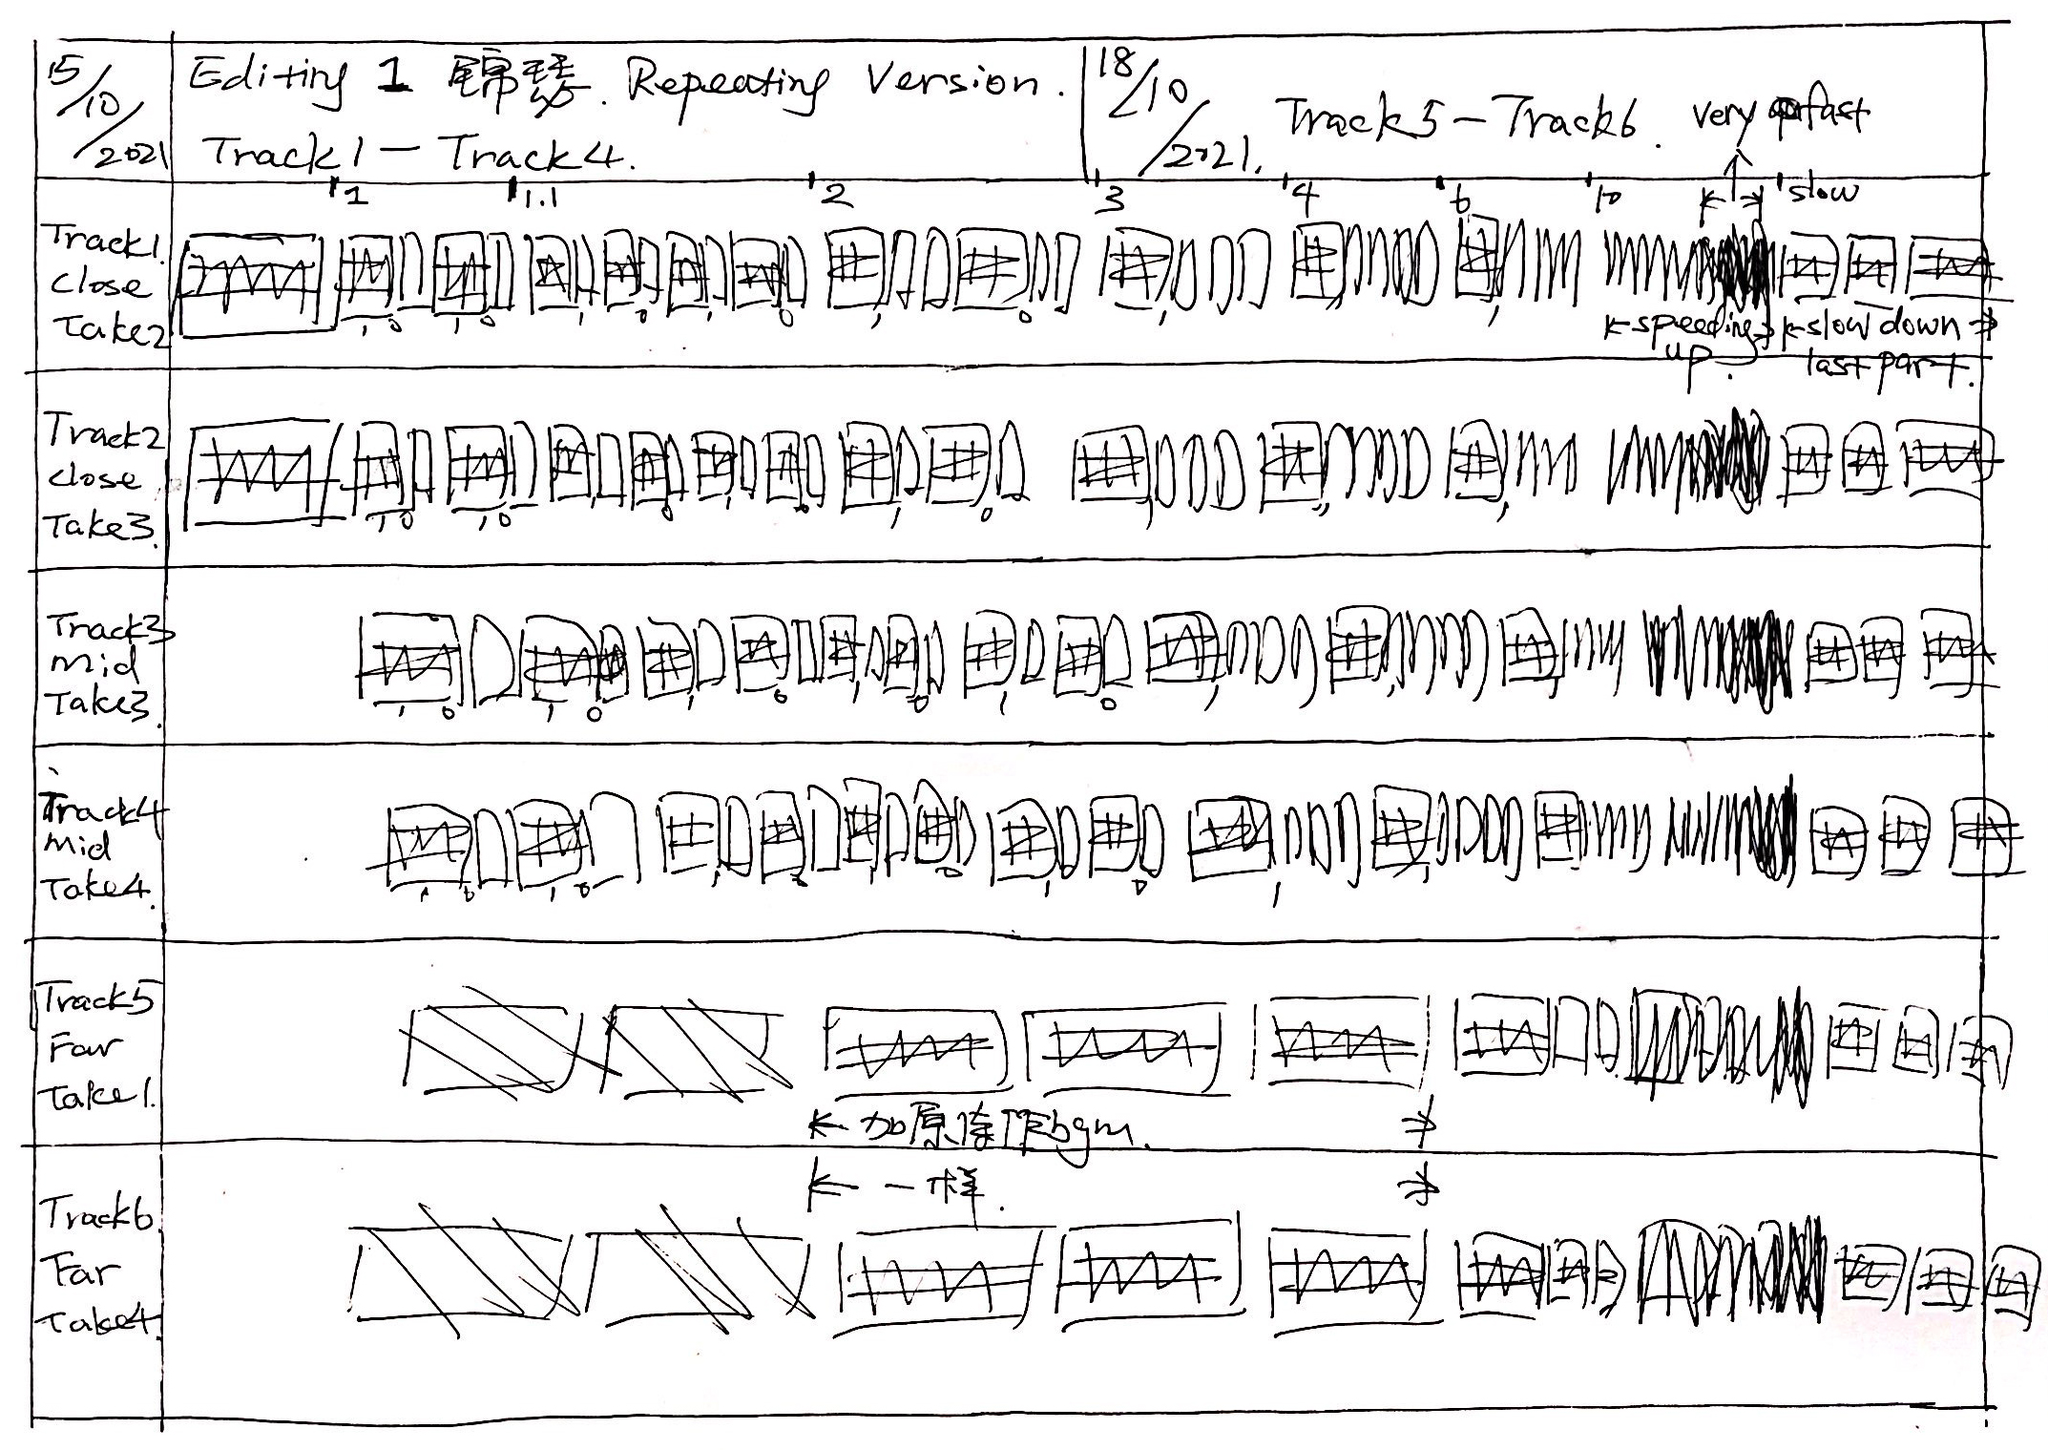 15/10/2021
Editing 1 錦瑟. Repeating Version.
Track1 - Track4.
18/10/2021.
Track5 - Track6. very fast
1 1.1 2 3 4 6 10 slow
Track1.
Close
Take2
speeding up.
slow down
last part.
Track2
Close
Take3.
Track3
Mid
Take3.
Track4
Mid
Take4.
Track5
Far
Take1.
bgm.
一样.
Track6
Far
Take4.